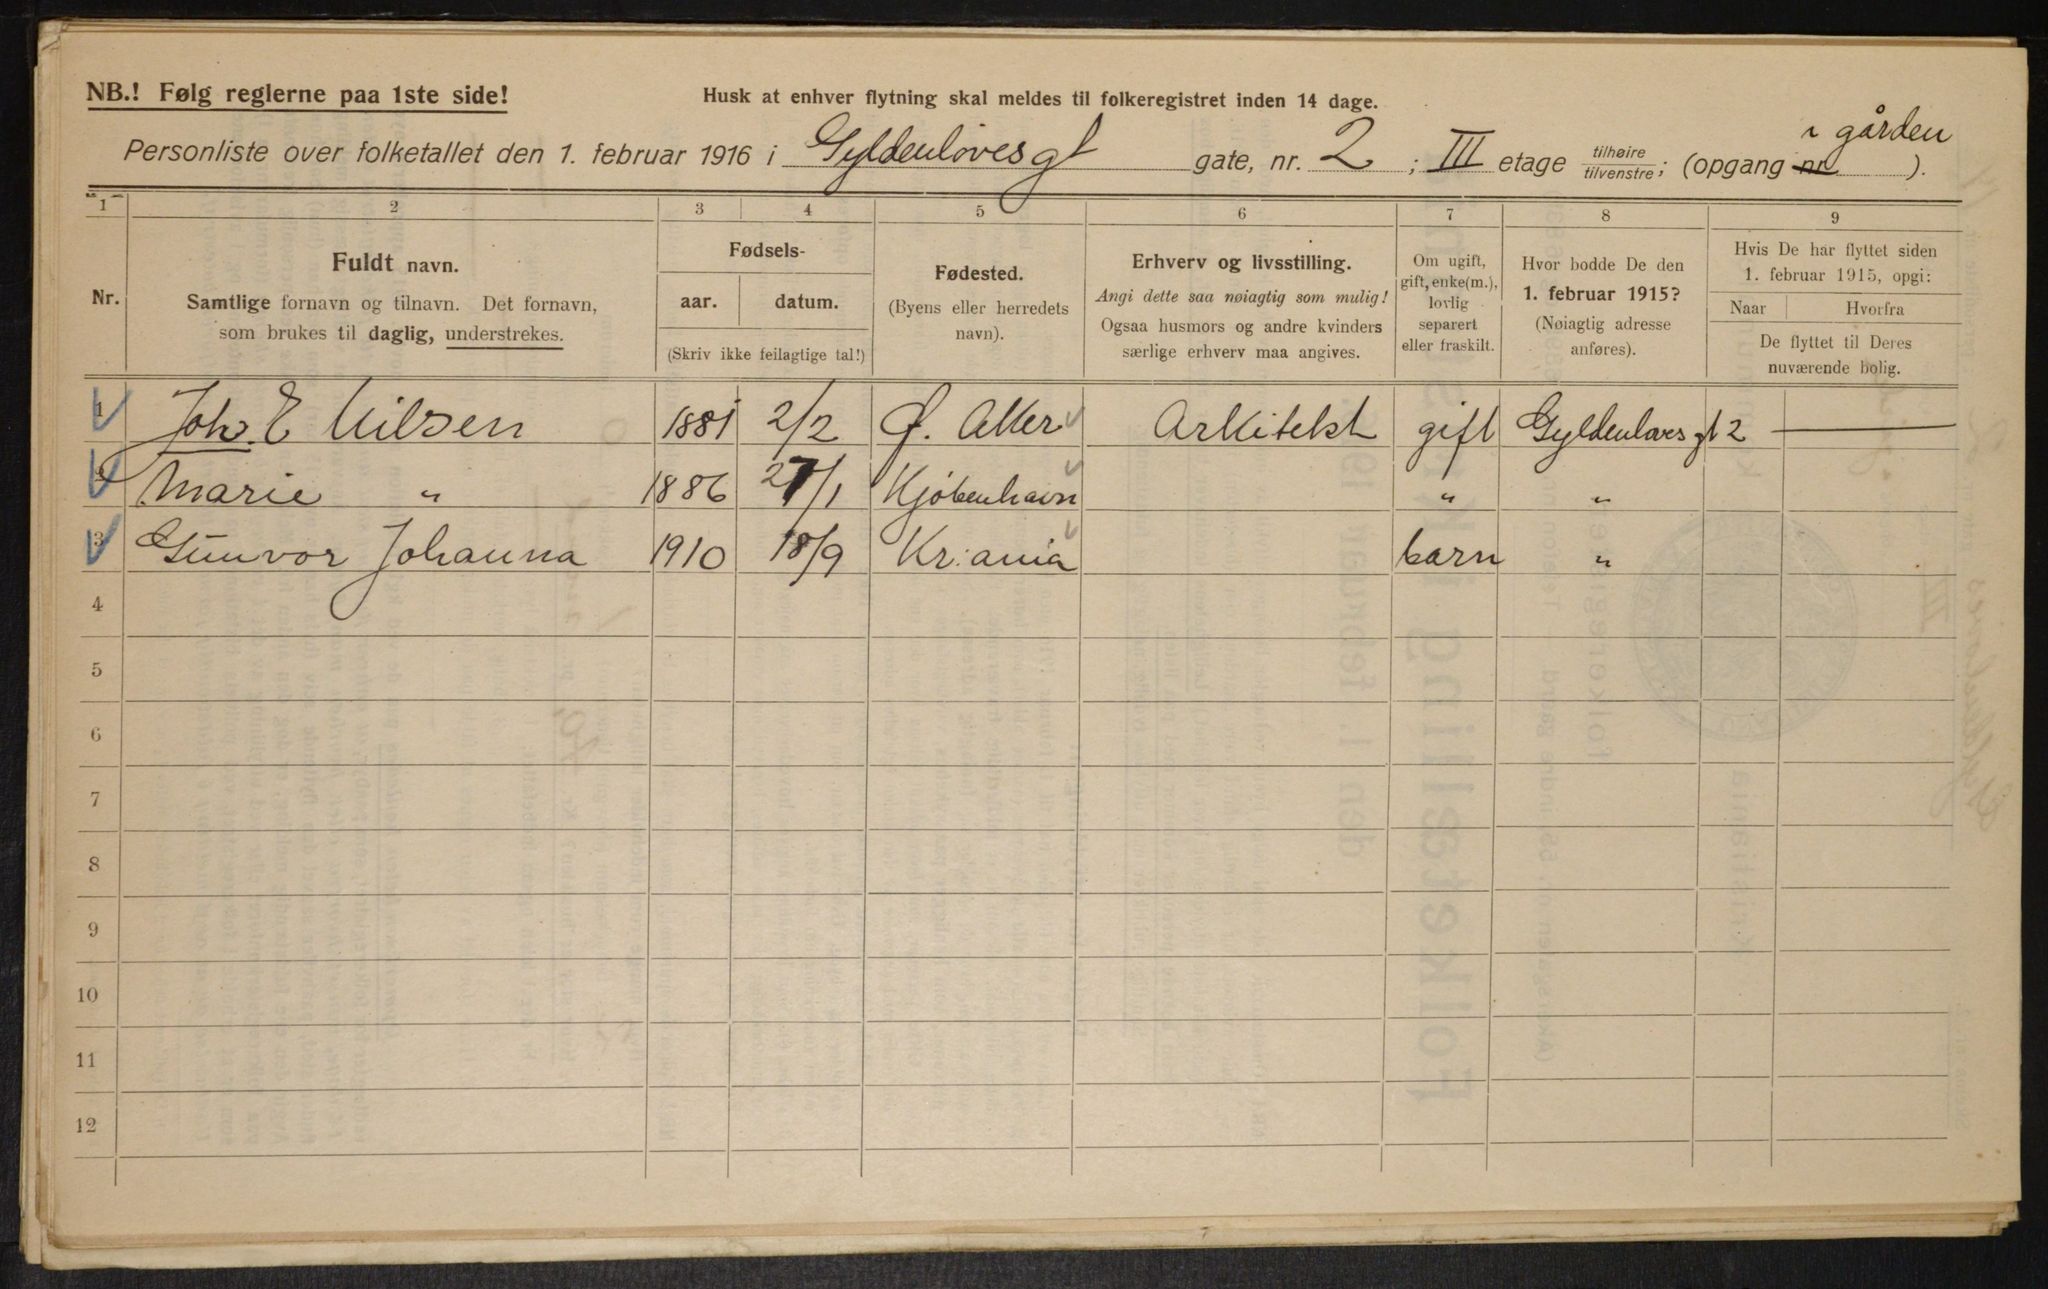 NB.! Følg reglerne paa 1ste side!
Husk at enhver flytning skal meldes til folkeregistret inden 14 dage.
Personliste over folketallet den 1. februar 1916 i Gyldenløves gt gate, nr. 2 ; III etage tilhøire/tilvenstre; (opgang nr. i gården ).
1 2 3 4 5 6 7 8 9
Nr.
Fuldt navn.
Samtlige fornavn og tilnavn. Det fornavn,
som brukes til daglig, understrekes.
Fødsels-
aar. datum.
(Skriv ikke feilagtige tal!)
Fødested.
(Byens eller herredets
navn).
Erhverv og livsstilling.
Angi dette saa nøiagtig som mulig!
Ogsaa husmors og andre kvinders
særlige erhverv maa angives.
Om ugift,
gift, enke(m.),
lovlig
separert
eller fraskilt.
Hvor bodde De den
1. februar 1915?
(Nøiagtig adresse
anføres).
Hvis De har flyttet siden
1. februar 1915, opgi:
Naar Hvorfra
De flyttet til Deres
nuværende bolig.
1 Joh. E Nilsen 1881 2/2 Ø. Aker Arkitekt gift Gyldenløves gt 2 —
2 Marie " 1886 27/1 Kjøbenhavn " "
3 Gunvor Johanna 1910 18/9 Kr:ania barn "
4
5
6
7
8
9
10
11
12